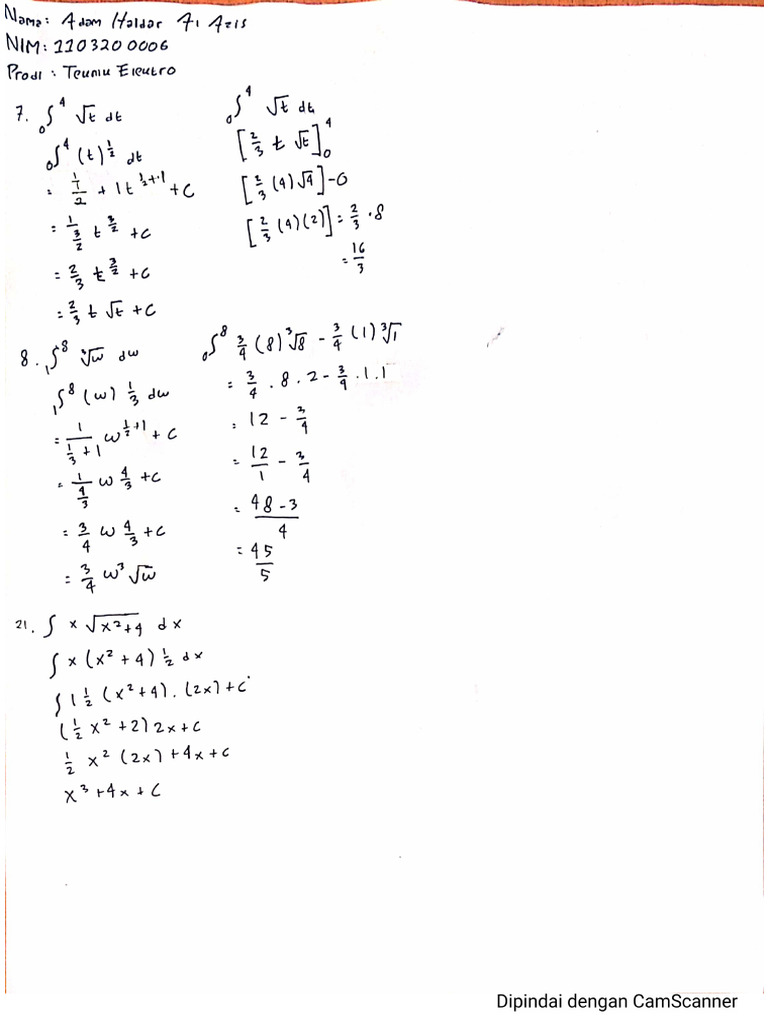 Nama: Adam Haldar Al Azis
NIM: 1103200006
Prodi : Teuniu Eleutro
7. ₀∫⁴ √t dt
₀∫⁴ (t)^½ dt
= 1/(1/2) + 1t^(½+1) + C
= 1/(3/2) t^(3/2) + C
= 2/3 t^(3/2) + C
= 2/3 t √t + C
₀∫⁴ √t dt
[2/3 t √t]₀⁴
[2/3 (4)√4] - 0
[2/3 (4)(2)] = 2/3 · 8
= 16/3
8. ₁∫⁸ ∛w dw
₁∫⁸ (w) 1/3 dw
= 1/(1/3 + 1) w^(1/2+1) + C
= 1/(4/3) w 4/3 + C
= 3/4 w 4/3 + C
= 3/4 w³ √w
₀∫⁸ 3/4 (8) ³√8 - 3/4 (1) ³√1
= 3/4 . 8 . 2 - 3/4 . 1 . 1
= 12 - 3/4
= 12/1 - 3/4
= (48 - 3)/4
= 45/5
21. ∫ x √(x²+4) dx
∫ x (x² + 4) 1/2 dx
∫ 1 1/2 (x² + 4) . (2x) + C
(1/2 x² + 2) 2x + C
1/2 x² (2x) + 4x + C
x³ + 4x + C
Dipindai dengan CamScanner